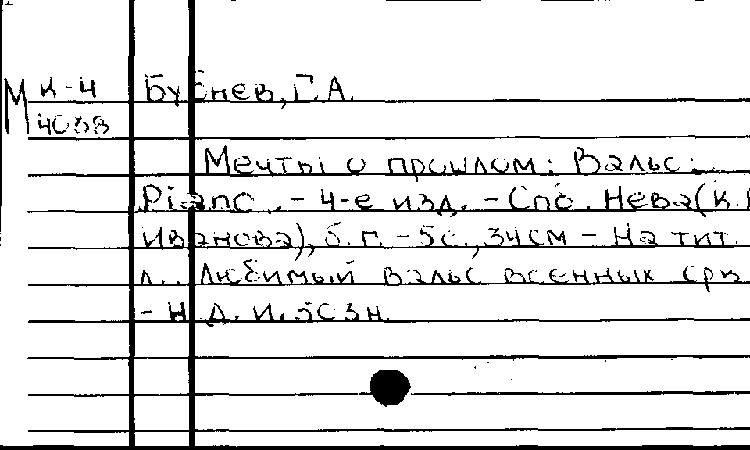 М к-4 Бубнев, Г.А.
4088
Мечты о прошлом: Вальс:
Piano. - 4-е изд. - Спб. Нева (К.
Иванова), б.г. - 5с., 34см - На тит.
л.: Любимый вальс военных
- Н.Д. И.